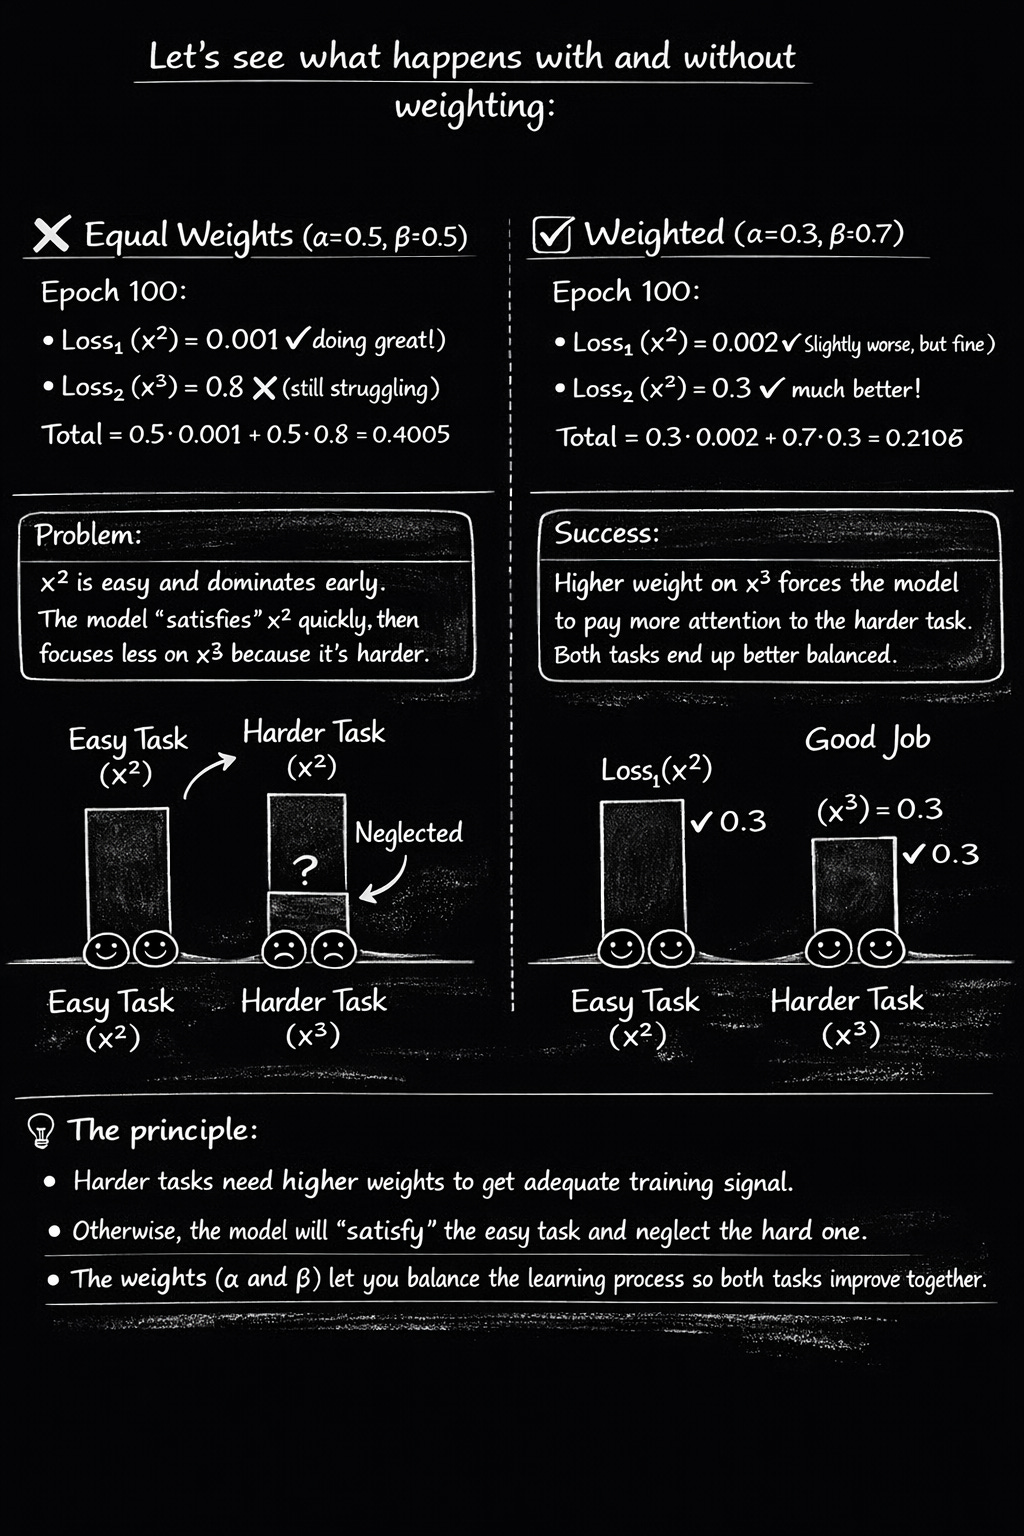 Let's see what happens with and without
weighting:
❌ Equal Weights (α=0.5, β=0.5)
Epoch 100:
• Loss₁ (x²) = 0.001 ✓ doing great!)
• Loss₂ (x³) = 0.8 ✗ (still struggling)
Total = 0.5·0.001 + 0.5·0.8 = 0.4005
Problem:
x² is easy and dominates early.
The model "satisfies" x² quickly, then
focuses less on x³ because it's harder.
Easy Task
(x²)
Harder Task
(x²)
Neglected
?
Easy Task
(x²)
Harder Task
(x³)
☑ Weighted (α=0.3, β=0.7)
Epoch 100:
• Loss₁ (x²) = 0.002 ✓ Slightly worse, but fine)
• Loss₂ (x²) = 0.3 ✓ much better!
Total = 0.3·0.002 + 0.7·0.3 = 0.2106
Success:
Higher weight on x³ forces the model
to pay more attention to the harder task.
Both tasks end up better balanced.
Good Job
Loss₁(x²)
✓ 0.3
(x³) = 0.3
✓ 0.3
Easy Task
(x²)
Harder Task
(x³)
The principle:
• Harder tasks need higher weights to get adequate training signal.
• Otherwise, the model will "satisfy" the easy task and neglect the hard one.
• The weights (α and β) let you balance the learning process so both tasks improve together.